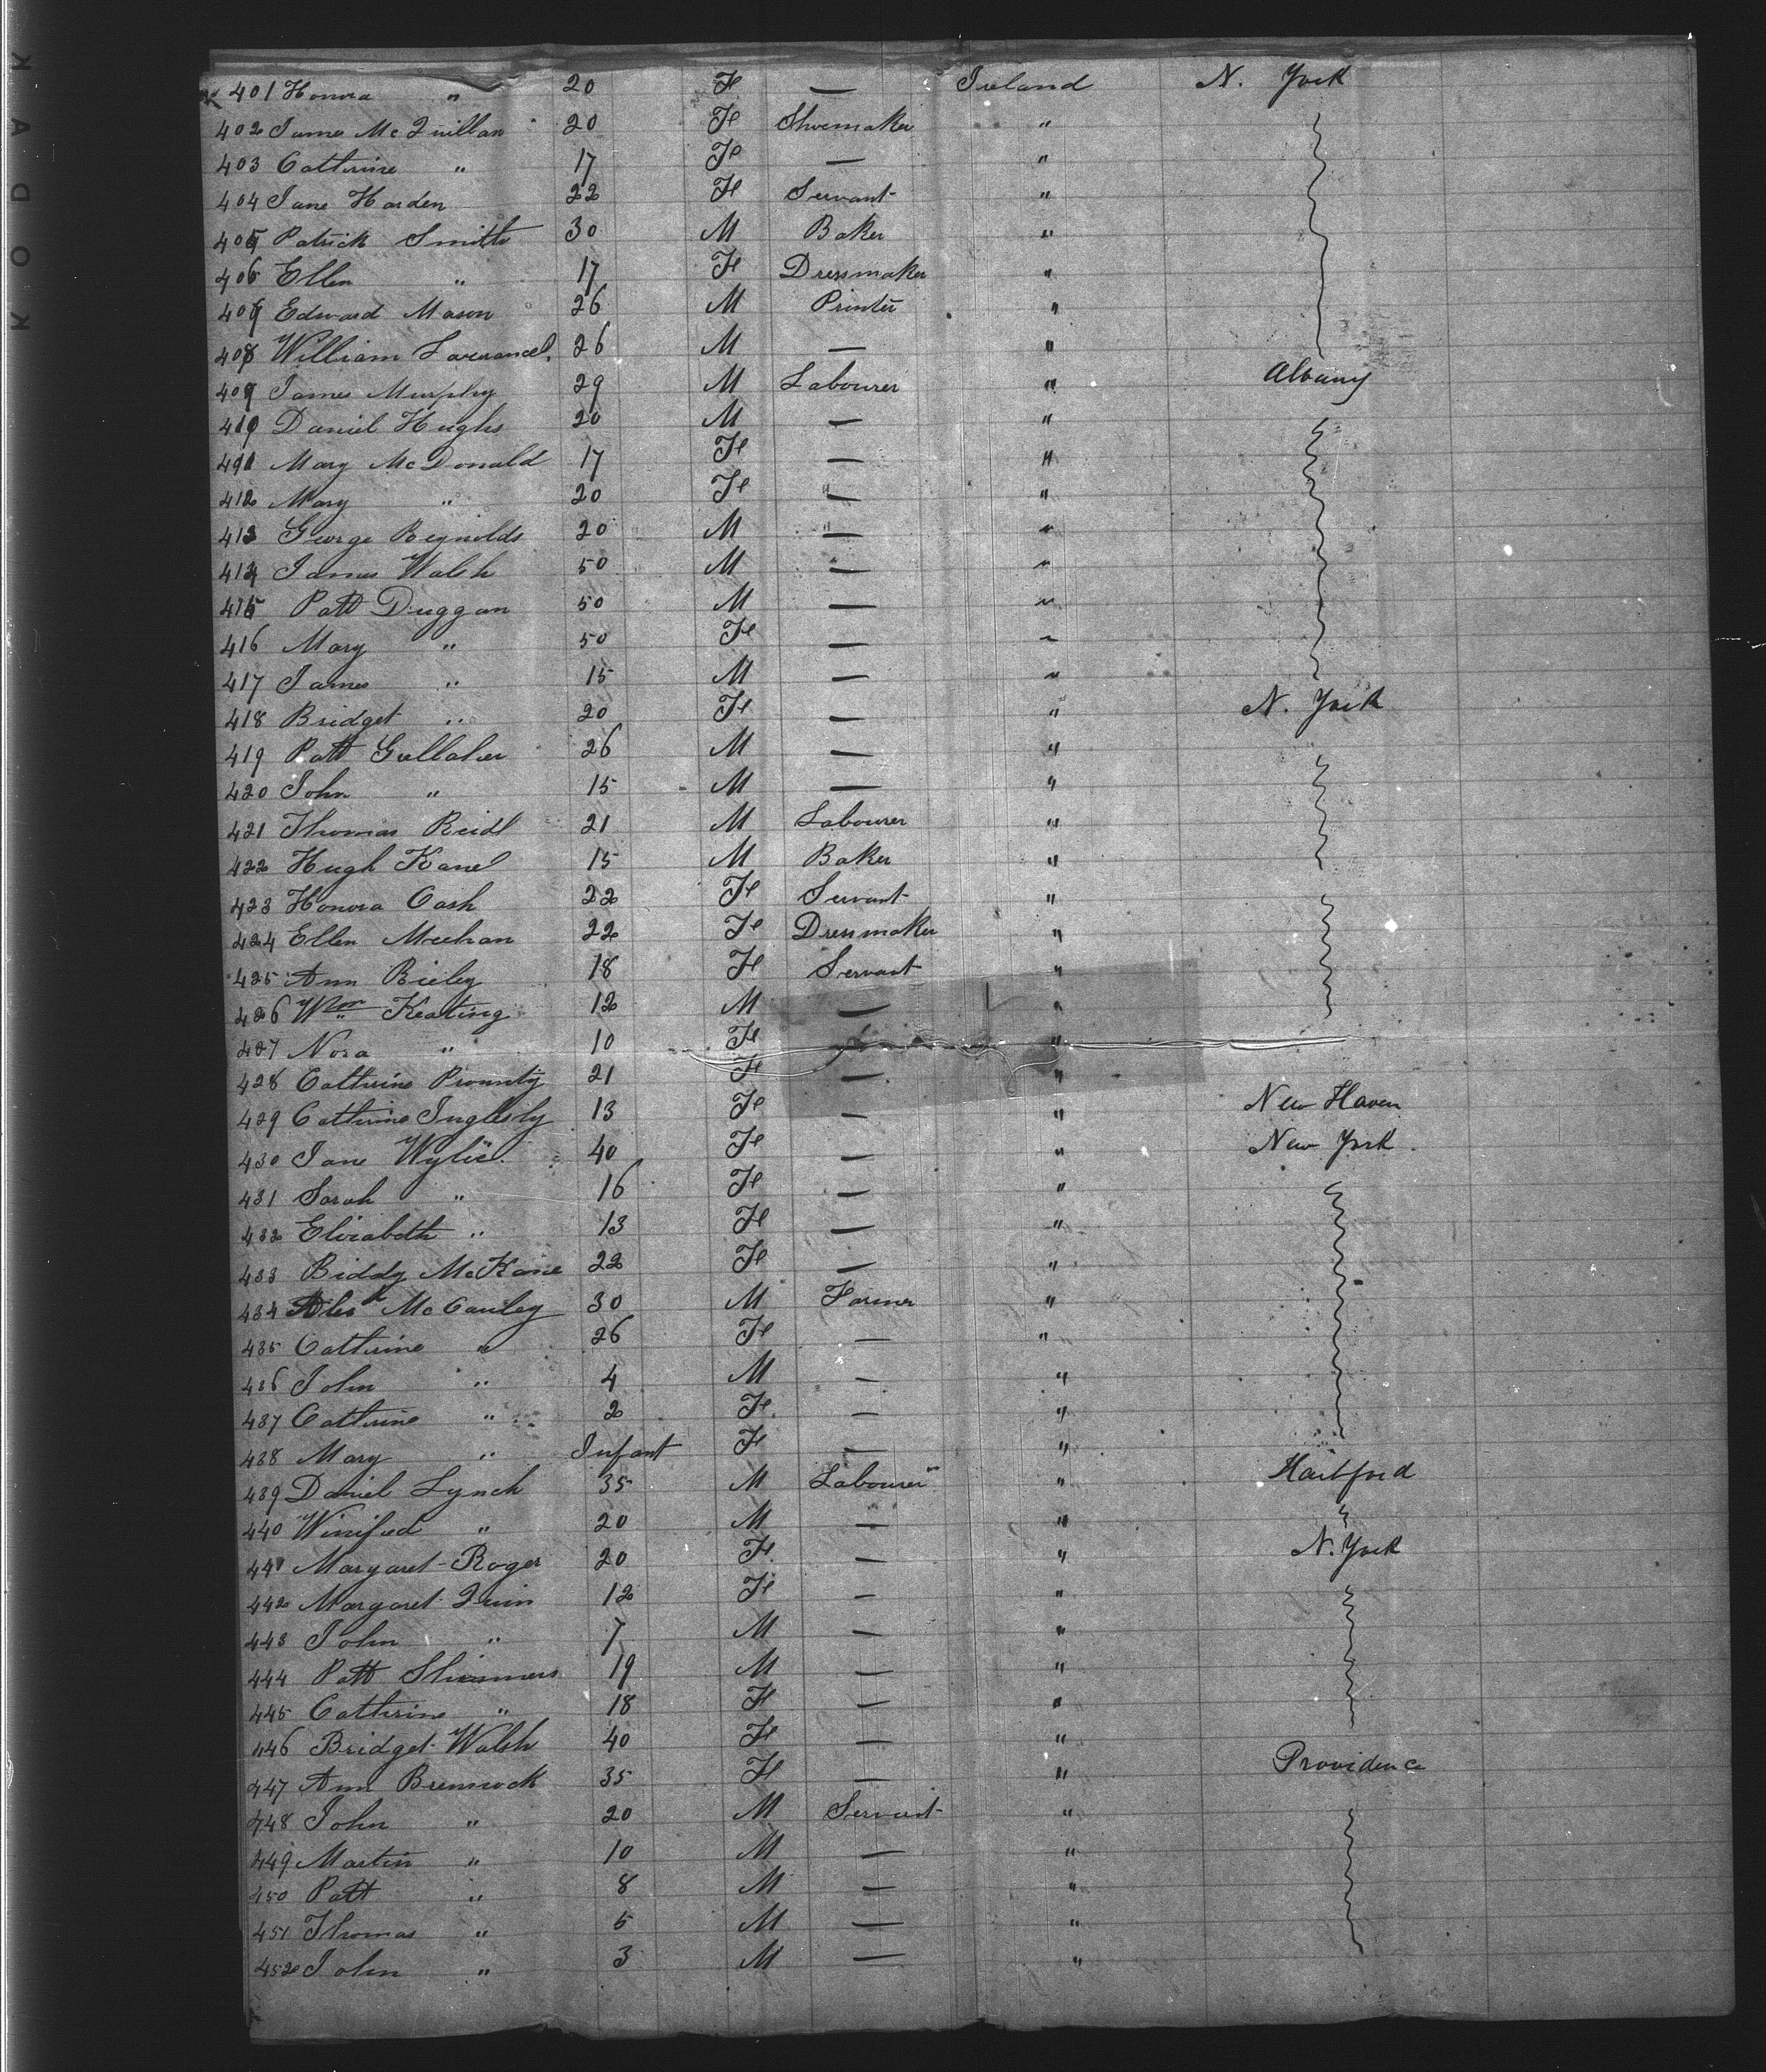 KODAK
401 Honora " 20 Fe — Ireland N. York
402 James McQuillan 20 Fe Shoemaker "
403 Catherine " 17 Fe — "
404 Jane Harden 22 Fe Servant "
405 Patrick Smith 30 M Baker "
406 Ellen " 17 Fe Dressmaker "
407 Edward Mason 26 M Printer "
408 William 26 M — "
409 James Murphy 29 M Labourer " Albany
410 Daniel Hughs 20 M — "
411 Mary McDonald 17 Fe — "
412 Mary " 20 Fe — "
413 George Reynolds 20 M — "
414 James Walsh 50 M — "
415 Patt Duggan 50 M — "
416 Mary " 50 Fe — "
417 James " 15 M — "
418 Bridget " 20 Fe — " N. York
419 Patt Gullaher 26 M — "
420 John " 15 M — "
421 Thomas Reid 21 M Labourer "
422 Hugh Kane 15 M Baker "
423 Honora Cash 22 Fe Servant "
424 Ellen Meehan 22 Fe Dressmaker "
425 Ann Rieley 18 Fe Servant "
426 Wm Keating 12 M — "
427 Nora " 10 Fe "
428 Catherine 21 Fe — "
429 Catherine Inglesby 13 Fe — " New Haven
430 Jane Wylie 40 Fe — " New York
431 Sarah " 16 Fe — "
432 Elizabeth " 13 Fe — "
433 Biddy McKane 22 Fe — "
434 McCauley 30 M Farmer "
435 Catherine " 26 Fe — "
436 John " 4 M — "
437 Catherine " 2 Fe — "
438 Mary " Infant Fe — "
439 Daniel Lynch 35 M Labourer " Hartford
440 Winifred " 20 M — "
441 Margaret Roger 20 Fe — " N. York
442 Margaret Quin 12 Fe — "
443 John " 7 M — "
444 Patt 19 M — "
445 Catherine " 18 Fe — "
446 Bridget Walsh 40 Fe — "
447 Ann 35 Fe — " Providence
448 John " 20 M Servant "
449 Martin " 10 M — "
450 Patt " 8 M — "
451 Thomas " 5 M — "
452 John " 3 M — "